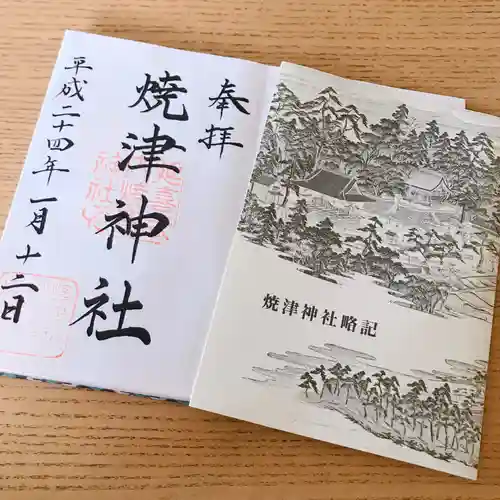 奉拝
焼津神社
平成二十四年一月十二日
焼津神社略記